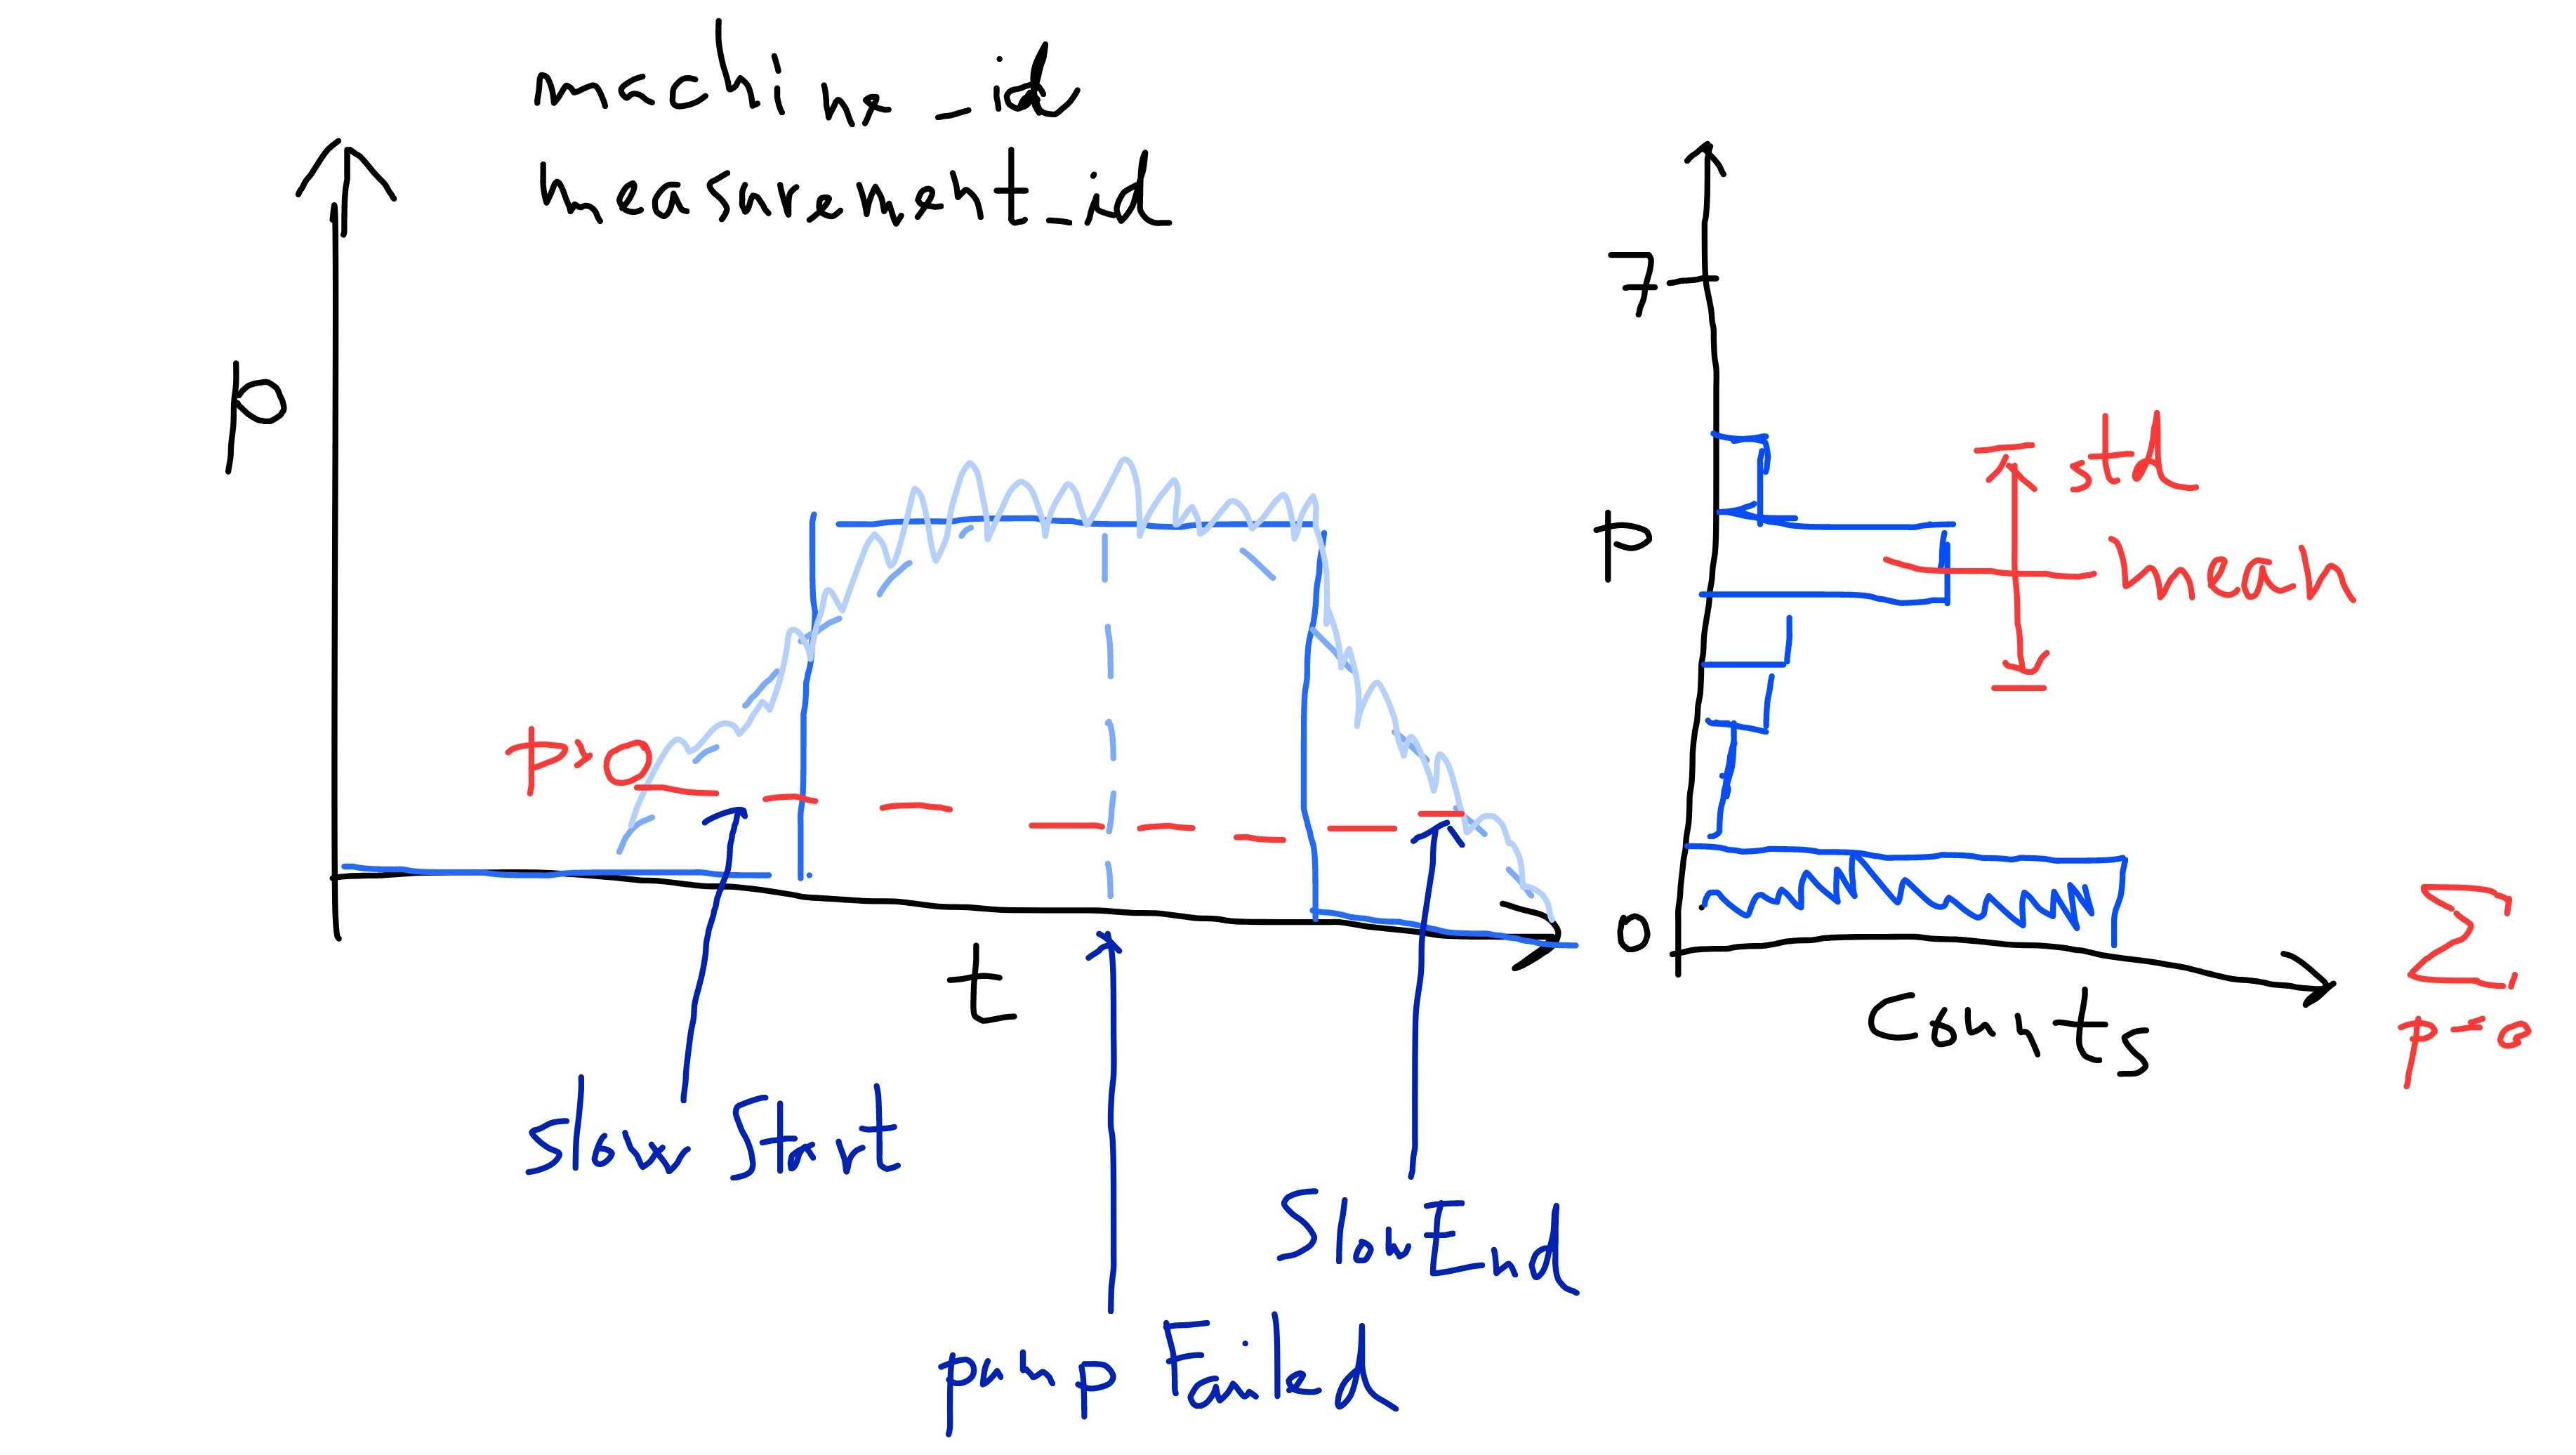 machine_id
measurement_id
p
p>0
t
slow Start
pump Failed
Slow End
7
p
0
Counts
std
mean
Σ
p=0